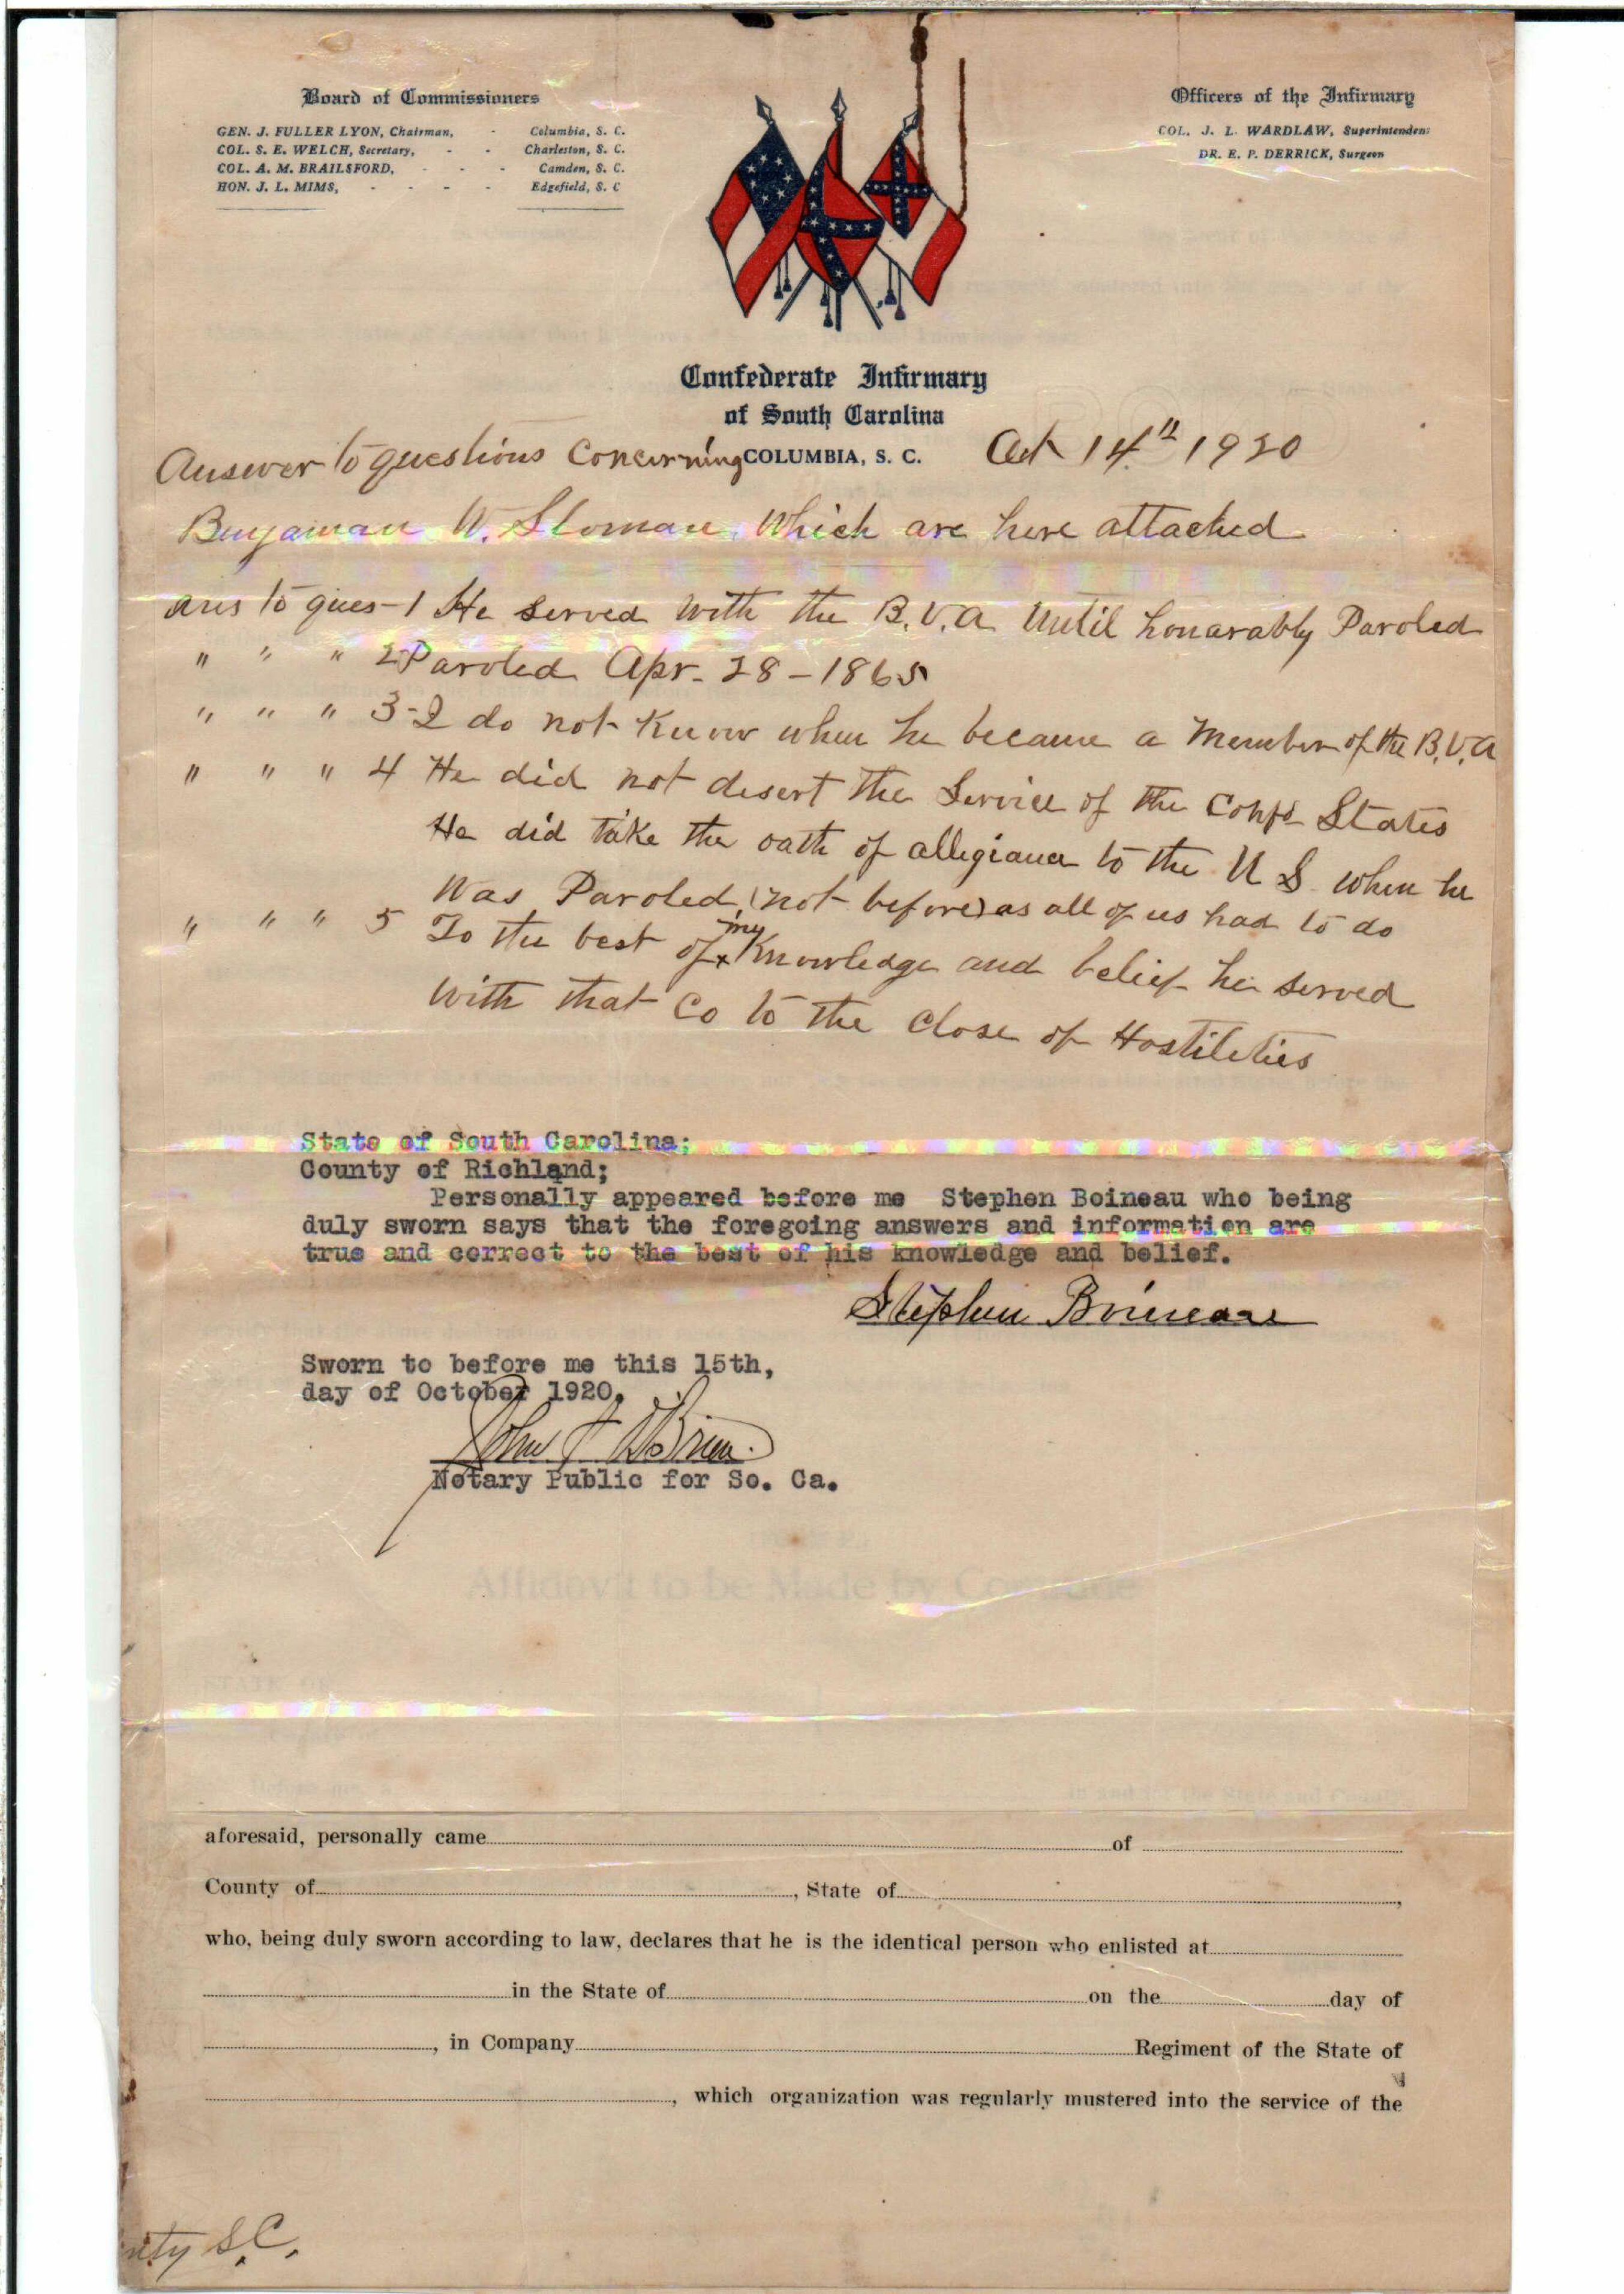 Board of Commissioners
GEN. J. FULLER LYON, Chairman, - Columbia, S. C.
COL. S. E. WELCH, Secretary, - - Charleston, S. C.
COL. A. M. BRAILSFORD, - - - Camden, S. C.
HON. J. L. MIMS, - - - - Edgefield, S. C
Officers of the Infirmary
COL. J. L. WARDLAW, Superintendent
DR. E. P. DERRICK, Surgeon
Confederate Infirmary
of South Carolina
COLUMBIA, S. C. Oct 14th 1920
Answer to questions Concerning
Benjaman W. Sloman Which are here attached
ans to ques-1 He served with the B.V.A Until honarably Paroled
" " " 2 Paroled Apr. 28-1865
" " " 3-I do not Know when he became a Member of the B.V.A
" " " 4 He did not desert the Service of the Confd States
He did take the oath of allegiance to the U S when he
Was Paroled, (not before) as all of us had to do
" " " 5 To the best of my Knowledge and belief he served
With that Co to the Close of Hostileties
State of South Carolina;
County of Richland;
Personally appeared before me Stephen Boineau who being
duly sworn says that the foregoing answers and information are
true and correct to the best of his knowledge and belief.
Stephen Boineau
Sworn to before me this 15th,
day of October 1920.
John J O'Brien.
Notary Public for So. Ca.
Affidavit to be Made by Comrade
STATE OF
in and for the State and County
aforesaid, personally came of
County of , State of ,
who, being duly sworn according to law, declares that he is the identical person who enlisted at
in the State of on the day of
, in Company Regiment of the State of
, which organization was regularly mustered into the service of the
nty S.C.